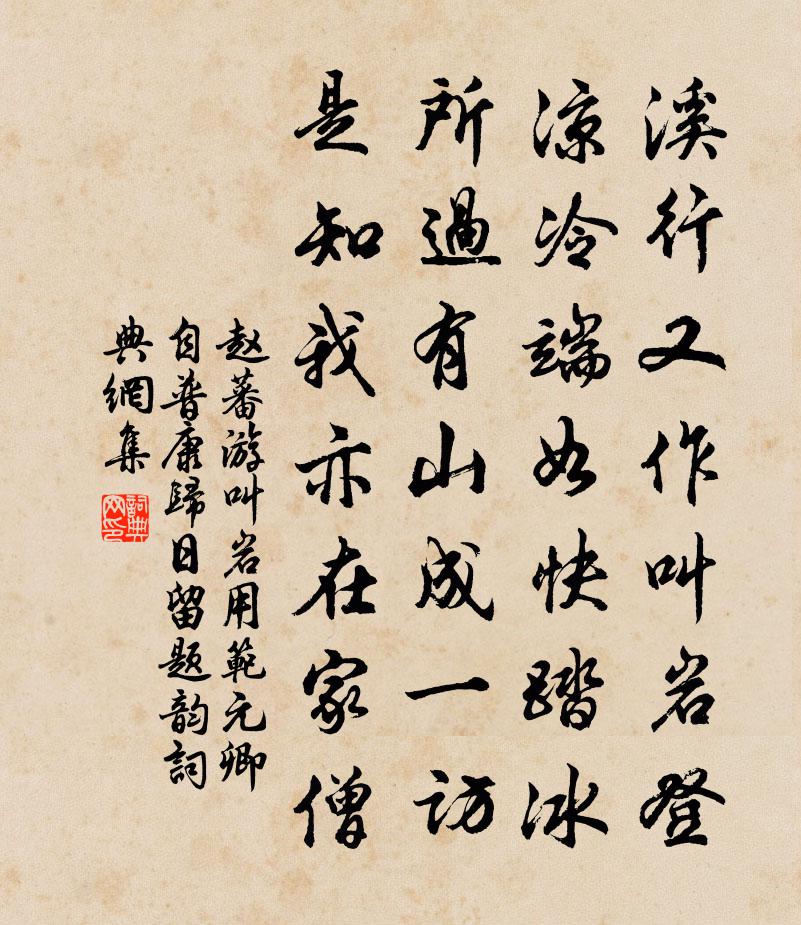 溪行又作叫岩登
凉冷端如快踏冰
所過有山成一访
是知我亦在家僧
赵蕃游叫岩用範元卿
自普康歸日留题韵詞
典網集
詞典
网印